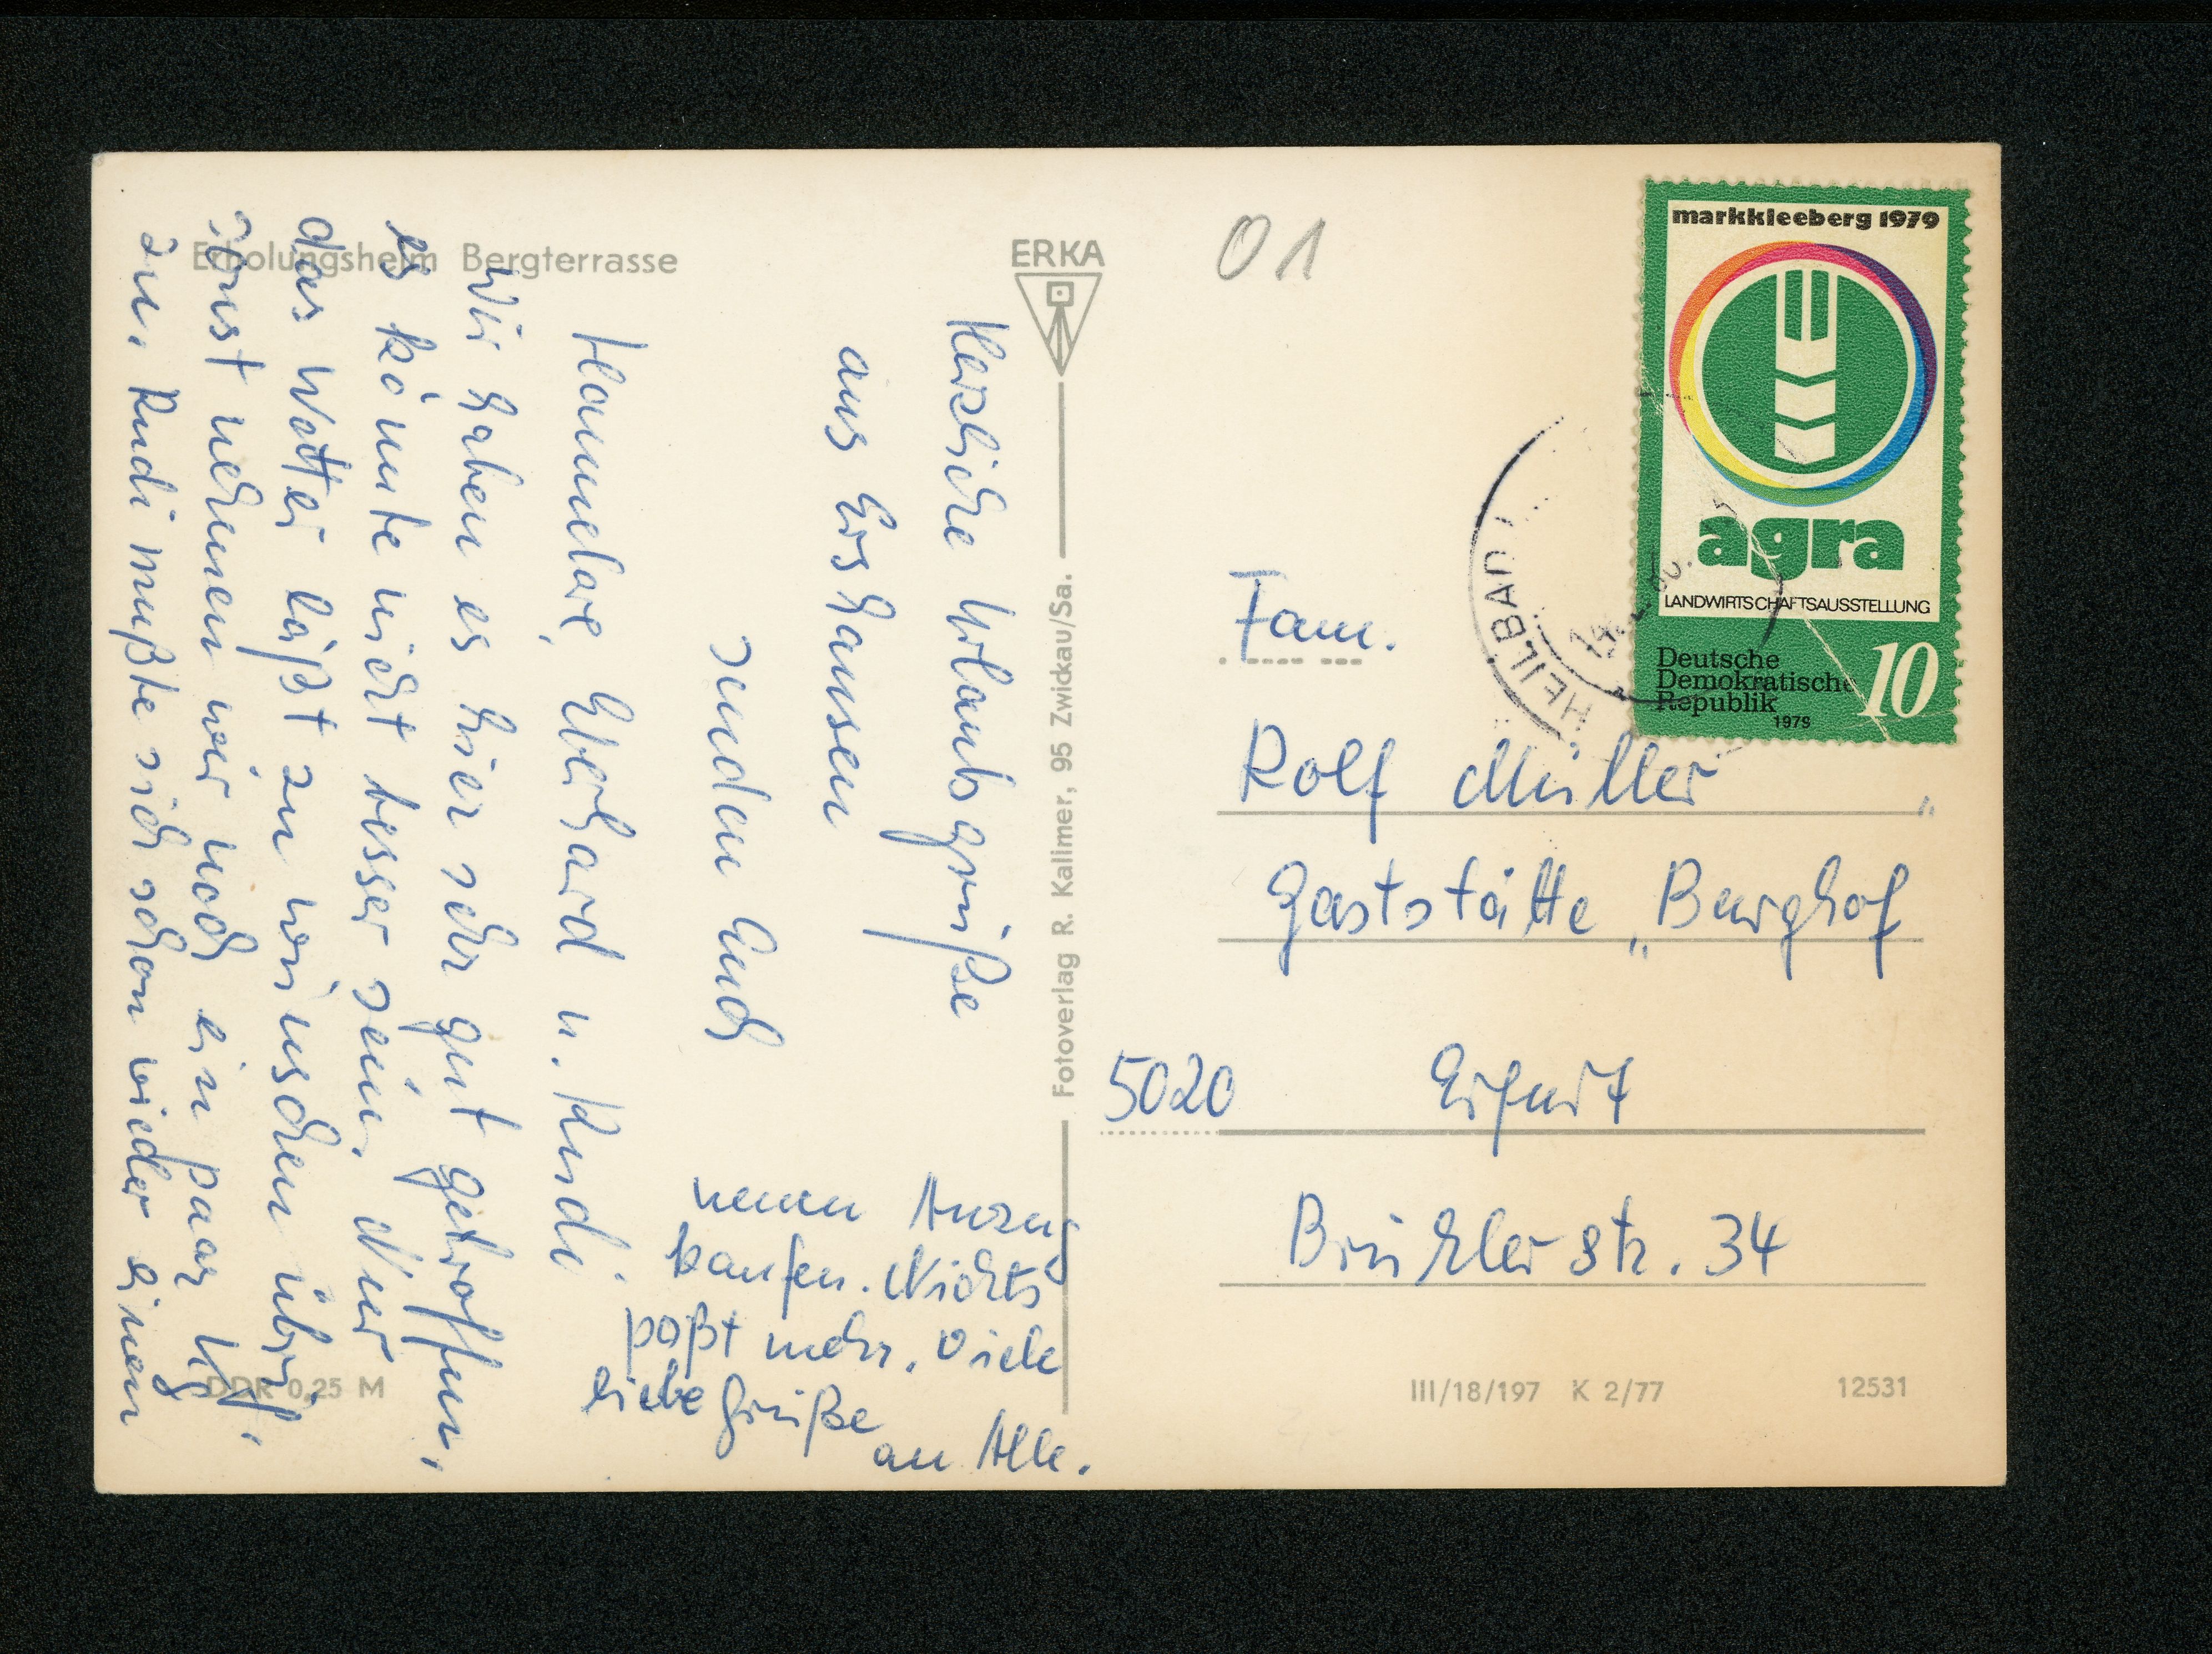 Erholungsheim Bergterrasse
ERKA
01
markkleeberg 1979
agra
LANDWIRTSCHAFTSAUSSTELLUNG
Deutsche
Demokratische
Republik
10
1979
HEILBAD
Herzliche Urlaubsgrüße
aus
senden Euch
Hannelore, Eberhard u. Rudi.
Wir haben es hier sehr gut getroffen,
es könnte nicht besser sein. Nur
das Wetter läßt zu wünschen übrig.
Sonst nehmen wir noch ein paar kg
zu. Rudi mußte sich schon wieder einen
neuen Anzug
kaufen. Nichts
paßt mehr. Viele
liebe Grüße
an Alle.
Fotoverlag R. Kallmer, 95 Zwickau/Sa.
Fam.
Rolf Müller
Gaststätte „Burghof"
5020 Erfurt
Brühlerstr. 34
DDR 0,25 M
III/18/197 K 2/77
12531